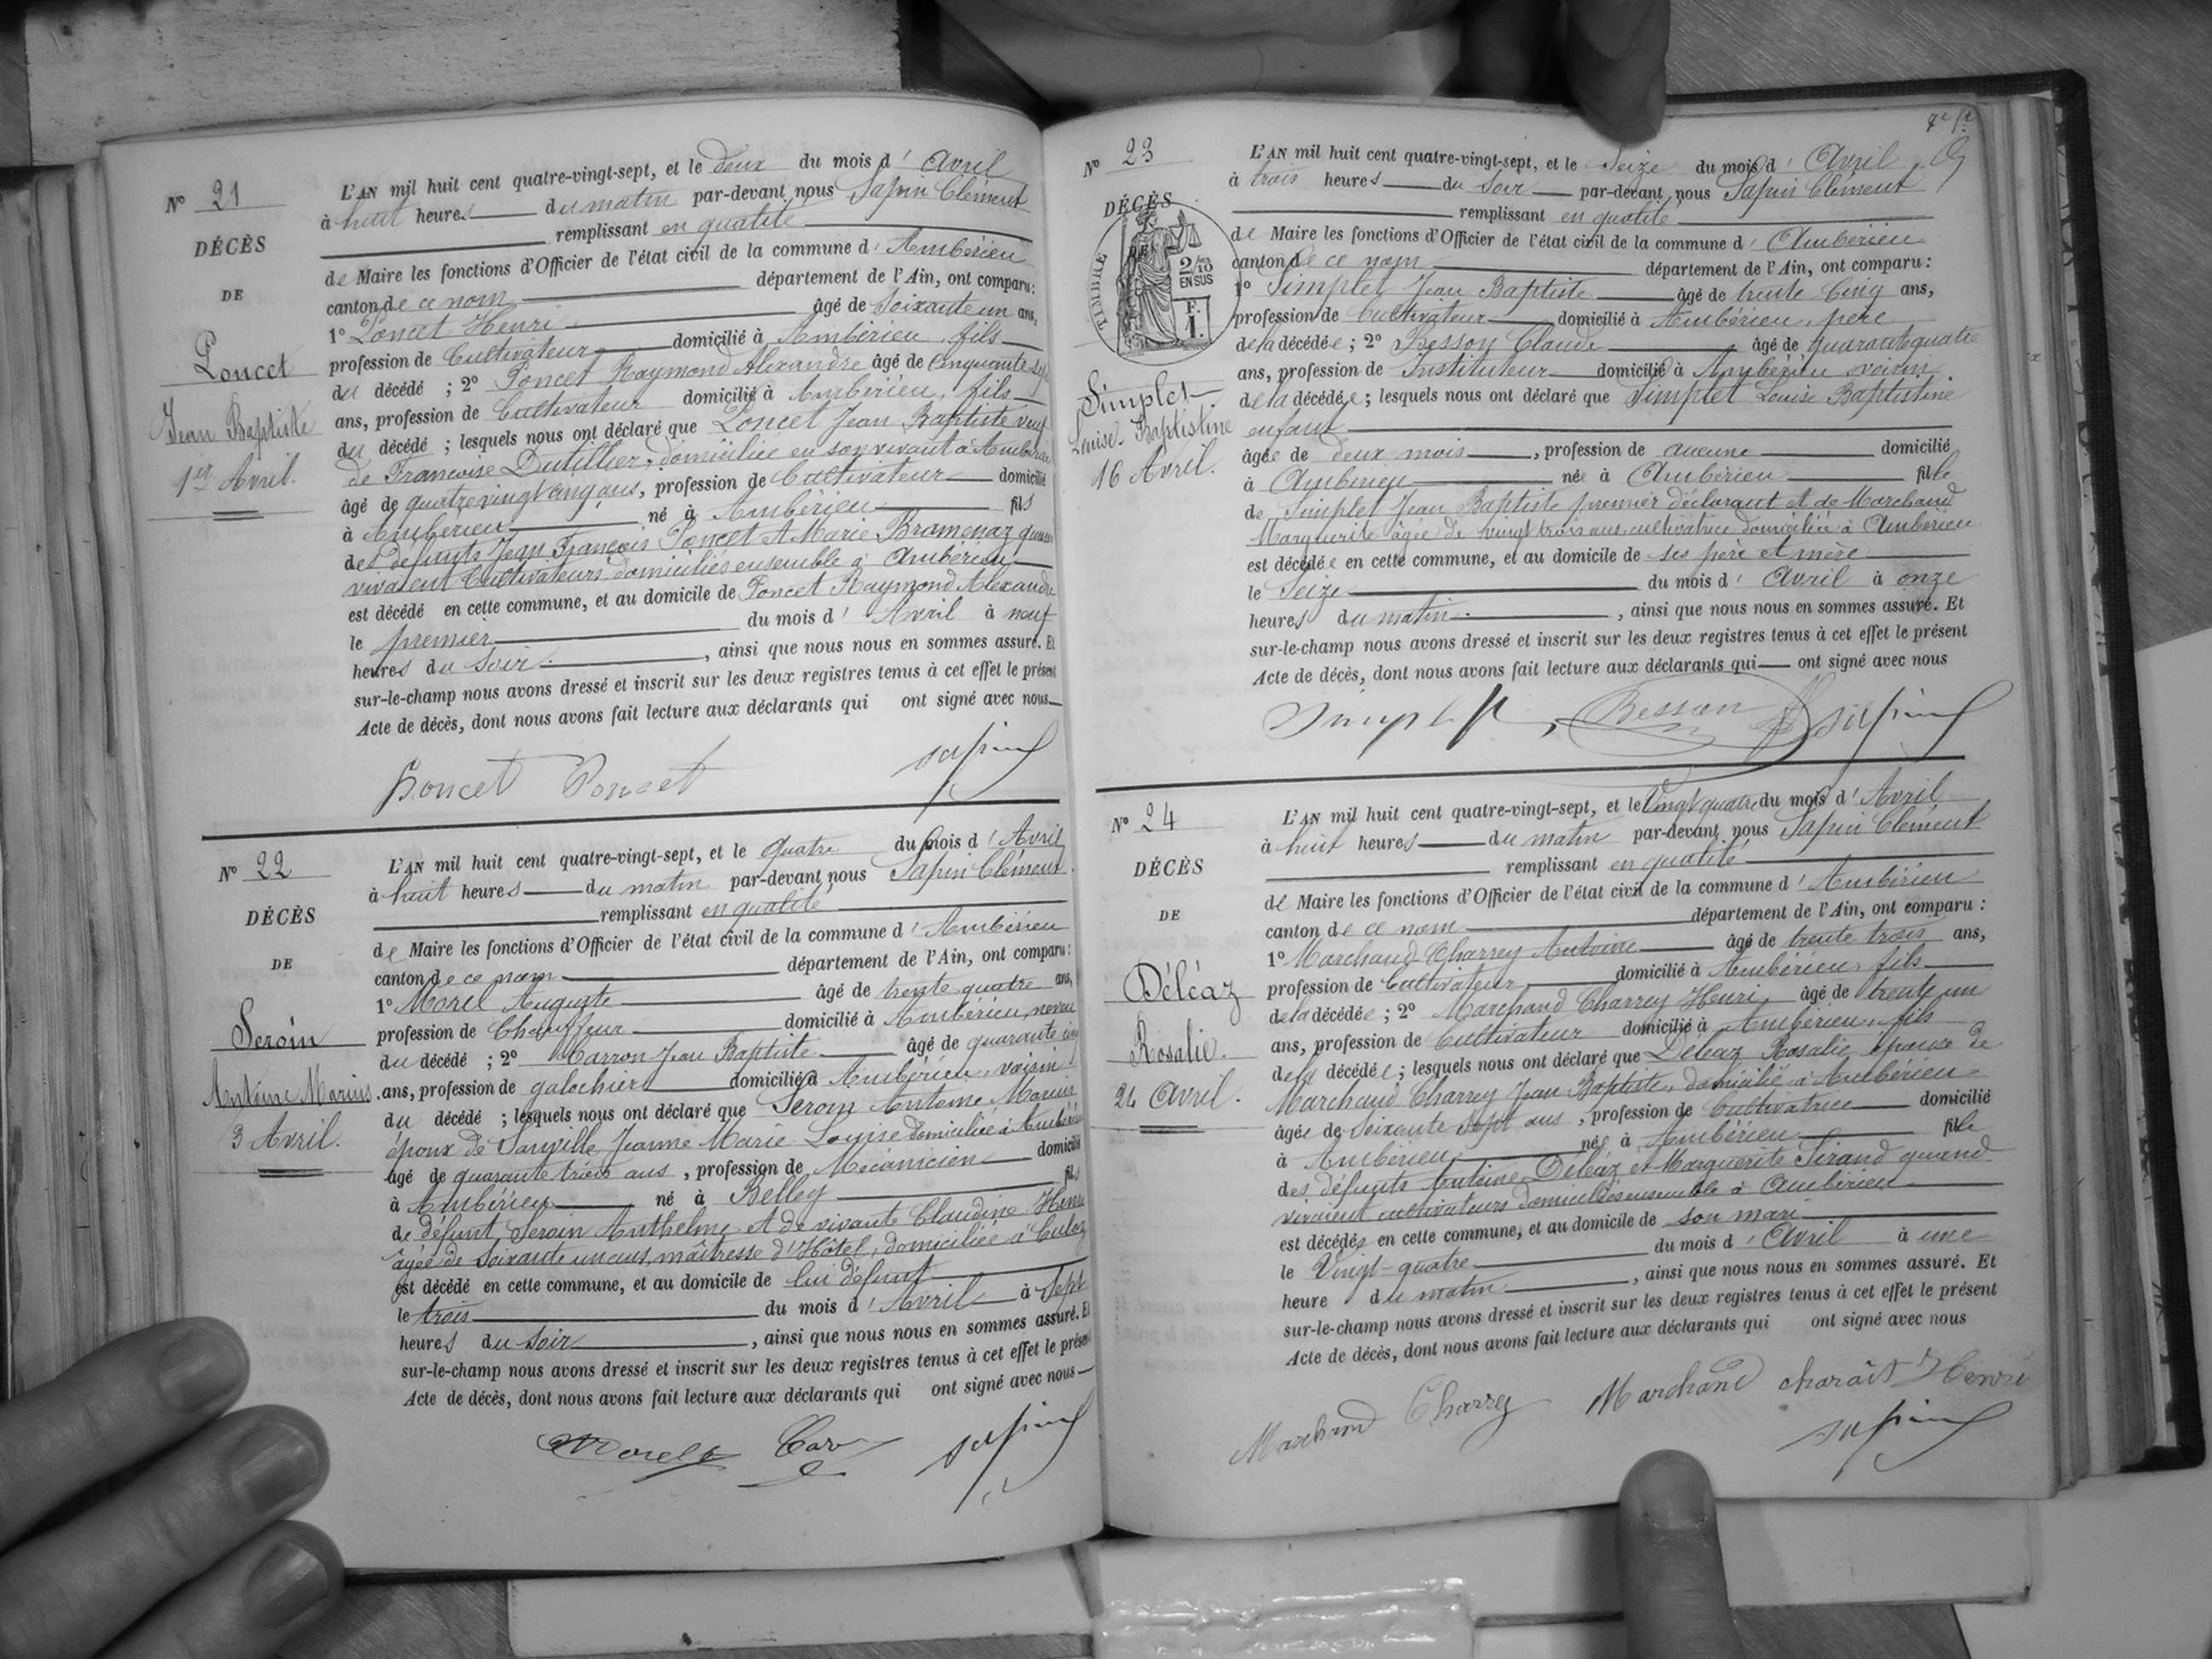 N° 21
DÉCÈS
DE
Poncet
Jean Baptiste
1er Avril.
L'AN mil huit cent quatre-vingt-sept, et le deux du mois d' Avril
à huit heures du matin par-devant nous Sapin Clément
remplissant en qualité
de Maire les fonctions d'Officier de l'état civil de la commune d' Ambérieu
canton de ce nom département de l'Ain, ont comparu :
1° Poncet Henri âgé de Soixante un ans,
profession de Cultivateur domicilié à Ambérieu, fils
du décédé ; 2° Poncet Raymond Alexandre âgé de Cinquante
ans, profession de Cultivateur domicilié à Ambérieu, fils
du décédé ; lesquels nous ont déclaré que Poncet Jean Baptiste veuf
de Françoise Dutillier, domiciliée en son vivant à Ambérieu
âgé de quatre vingt cinq ans, profession de Cultivateur domicilié
à Ambérieu né à Ambérieu fils
des défunts Jean François Poncet et Marie Bramenaz quand
vivaient Cultivateurs domiciliés ensemble à Ambérieu
est décédé en cette commune, et au domicile de Poncet Raymond Alexandre
le premier du mois d' Avril à neuf
heures du soir , ainsi que nous nous en sommes assuré. Et
sur-le-champ nous avons dressé et inscrit sur les deux registres tenus à cet effet le présent
Acte de décès, dont nous avons fait lecture aux déclarants qui ont signé avec nous
Poncet Poncet Sapin
N° 22
DÉCÈS
DE
Seroin
Antoine Marius
3 Avril.
L'AN mil huit cent quatre-vingt-sept, et le quatre du mois d' Avril
à huit heures du matin par-devant nous Sapin Clément
remplissant en qualité
de Maire les fonctions d'Officier de l'état civil de la commune d' Ambérieu
canton de ce nom département de l'Ain, ont comparu :
1° Morel Auguste âgé de trente quatre ans,
profession de Chauffeur domicilié à Ambérieu, neveu
du décédé ; 2° Carron Jean Baptiste âgé de quarante cinq
ans, profession de galochier domicilié à Ambérieu, voisin
du décédé ; lesquels nous ont déclaré que Seroin Antoine Marius
époux de Jeanne Marie Louise domiciliée à Ambérieu
âgé de quarante trois ans , profession de Mécanicien domicilié
à Ambérieu né à Belley fils
de défunt Seroin Anthelme et de vivante Claudine Henri
âgée de Soixante un ans, maîtresse d'Hôtel, domiciliée à Culoz
est décédé en cette commune, et au domicile de lui défunt
le trois du mois d' Avril à Sept
heures du soir , ainsi que nous nous en sommes assuré. Et
sur-le-champ nous avons dressé et inscrit sur les deux registres tenus à cet effet le présent
Acte de décès, dont nous avons fait lecture aux déclarants qui ont signé avec nous
Morel Car Sapin
N° 23
DÉCÈS
DE
TIMBRE
2/10
EN SUS
F.
1.
Simplet
Louise-Baptistine
16 Avril.
L'AN mil huit cent quatre-vingt-sept, et le Seize du mois d' Avril
à trois heures du soir par-devant nous Sapin Clément
remplissant en qualité
de Maire les fonctions d'Officier de l'état civil de la commune d' Ambérieu
canton de ce nom département de l'Ain, ont comparu :
1° Simplet Jean Baptiste âgé de trente Cinq ans,
profession de Cultivateur domicilié à Ambérieu, père
de la décédée ; 2° Besson Claude âgé de quarante quatre
ans, profession de Instituteur domicilié à Ambérieu voisin
de la décédée ; lesquels nous ont déclaré que Simplet Louise Baptistine
enfant
âgée de deux mois , profession de aucune domicilié
à Ambérieu née à Ambérieu fille
de Simplet Jean Baptiste premier déclarant et de Marchand
Marguerite âgée de vingt trois ans cultivatrice domiciliée à Ambérieu
est décédée en cette commune, et au domicile de ses père et mère
le Seize du mois d' Avril à onze
heures du matin , ainsi que nous nous en sommes assuré. Et
sur-le-champ nous avons dressé et inscrit sur les deux registres tenus à cet effet le présent
Acte de décès, dont nous avons fait lecture aux déclarants qui ont signé avec nous
Simplet, Besson Sapin
N° 24
DÉCÈS
DE
Déléaz
Rosalie.
24 Avril.
L'AN mil huit cent quatre-vingt-sept, et le Vingt quatre du mois d' Avril
à huit heures du matin par-devant nous Sapin Clément
remplissant en qualité
de Maire les fonctions d'Officier de l'état civil de la commune d' Ambérieu
canton de ce nom département de l'Ain, ont comparu :
1° Marchand Charrey Antoine âgé de trente trois ans,
profession de Cultivateur domicilié à Ambérieu, fils
de la décédée ; 2° Marchand Charrey Henri âgé de trente un
ans, profession de Cultivateur domicilié à Ambérieu, fils
de la décédée ; lesquels nous ont déclaré que Déléaz Rosalie épouse de
Marchand Charrey Jean Baptiste, domicilié à Ambérieu
âgée de Soixante Sept ans , profession de Cultivatrice domicilié
à Ambérieu née à Ambérieu fille
des défunts Antoine Déléaz et Marguerite Sirand quand
vivaient cultivateurs domiciliés ensemble à Ambérieu
est décédée en cette commune, et au domicile de son mari
le Vingt-quatre du mois d' Avril à une
heure du matin , ainsi que nous nous en sommes assuré. Et
sur-le-champ nous avons dressé et inscrit sur les deux registres tenus à cet effet le présent
Acte de décès, dont nous avons fait lecture aux déclarants qui ont signé avec nous
Marchand Charrey Marchand charais Henri
Sapin